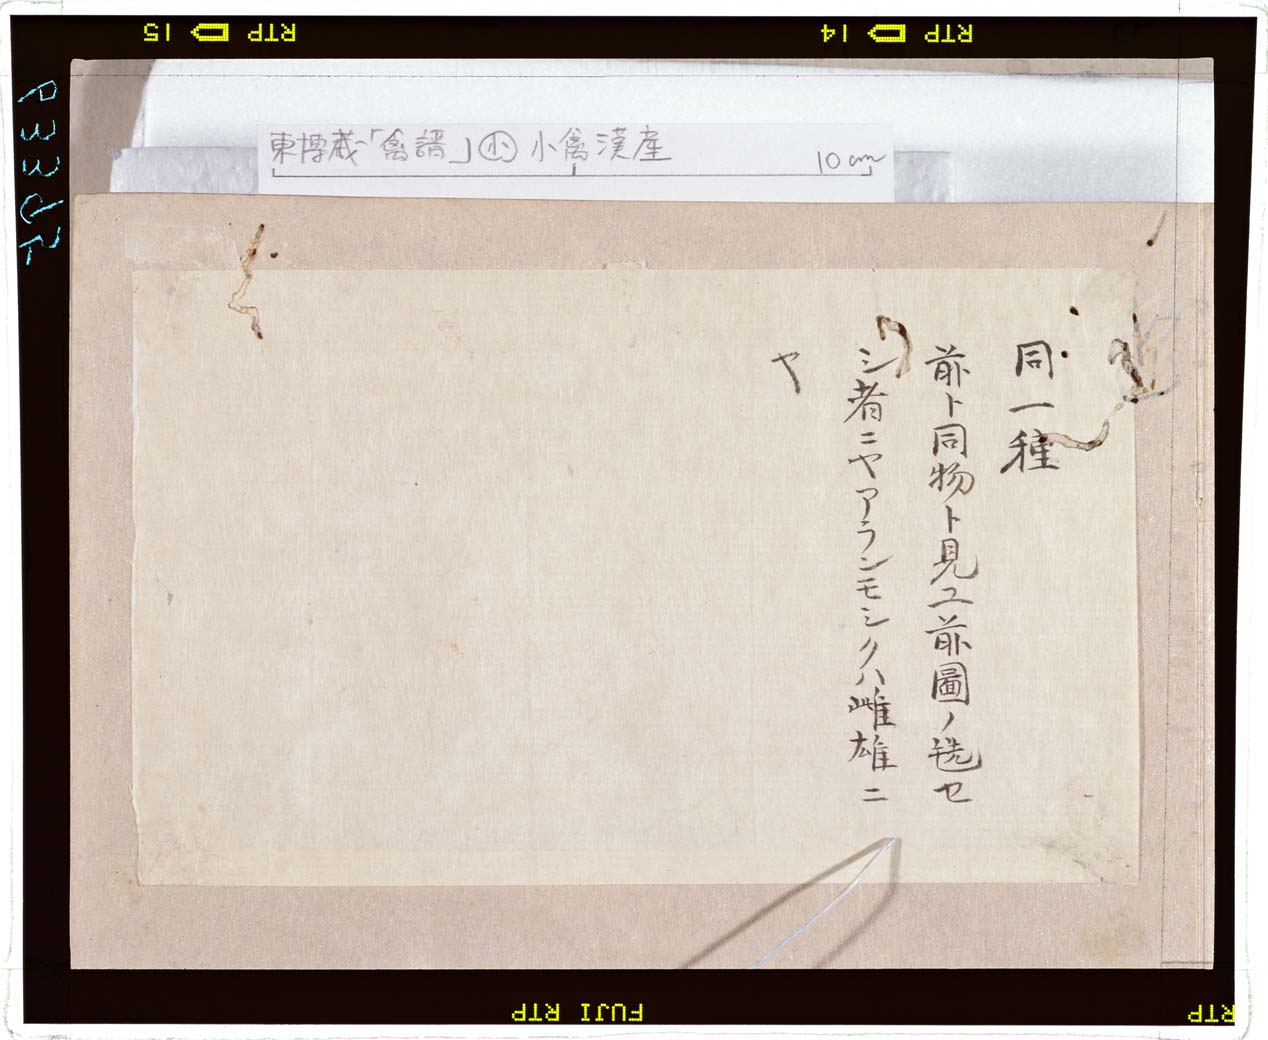 15 RTP
14 RTP
東博蔵「禽譜」小 小禽漢産
10cm
同一種
前ト同物ト見エ前圖ノ毨セ
シ者ニヤアランモシクハ雌雄ニ
ヤ
FUJI RTP
RTP